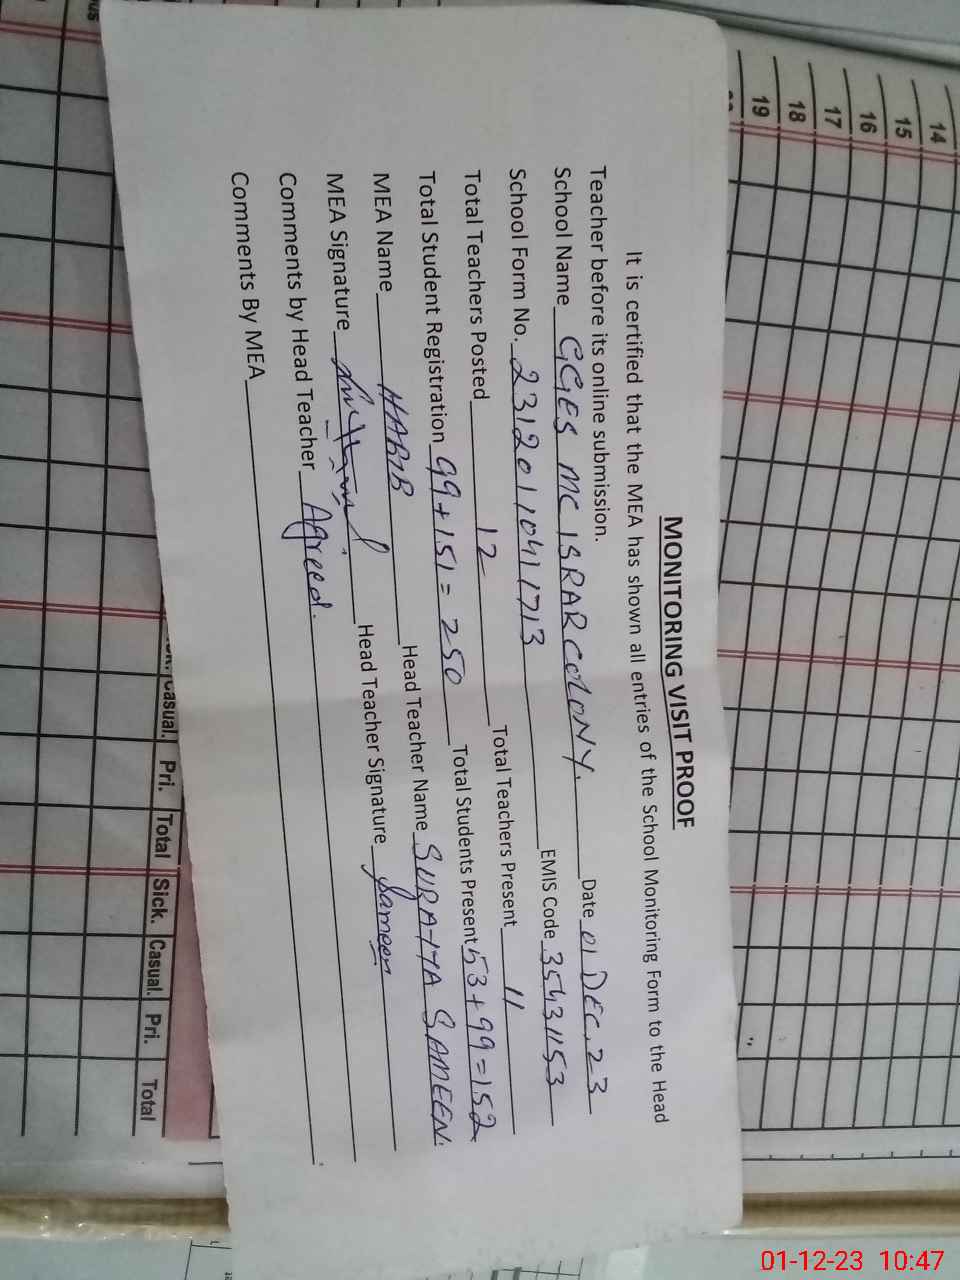 MONITORING VISIT PROOF
It is certified that the MEA has shown all entries of the School Monitoring Form to the Head
Teacher before its online submission.
School Name GGES MC ISRAR COLONY. Date 01 DEC, 23
School Form No. 2312011041713 EMIS Code 35431153
Total Teachers Posted 12 Total Teachers Present 11
Total Student Registration 99+151=250 Total Students Present 53+99=152
MEA Name HABIB Head Teacher Name SURAYYA SAMEEN.
MEA Signature Head Teacher Signature Sameen
Comments by Head Teacher Agreed.
Comments By MEA
14
15
16
17
18
19
Casual. Pri. Total Sick. Casual. Pri. Total
01-12-23 10:47